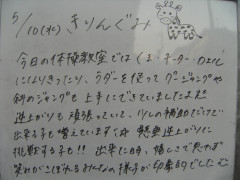 5/10(水) きりんぐみ
今日の体操教室では くま・チーター・ひよこ
になりきったり、ラダーを使って グージャンプや
斜めジャンプも 上手にできていましたよ!
逆上がりも 頑張っていて、少しの補助だけで
出来る子も増えています 懸垂逆上がりに
挑戦する子も!! 出来た時、嬉しさで思わず
笑みがこぼれるみんなの様子が 印象的でした